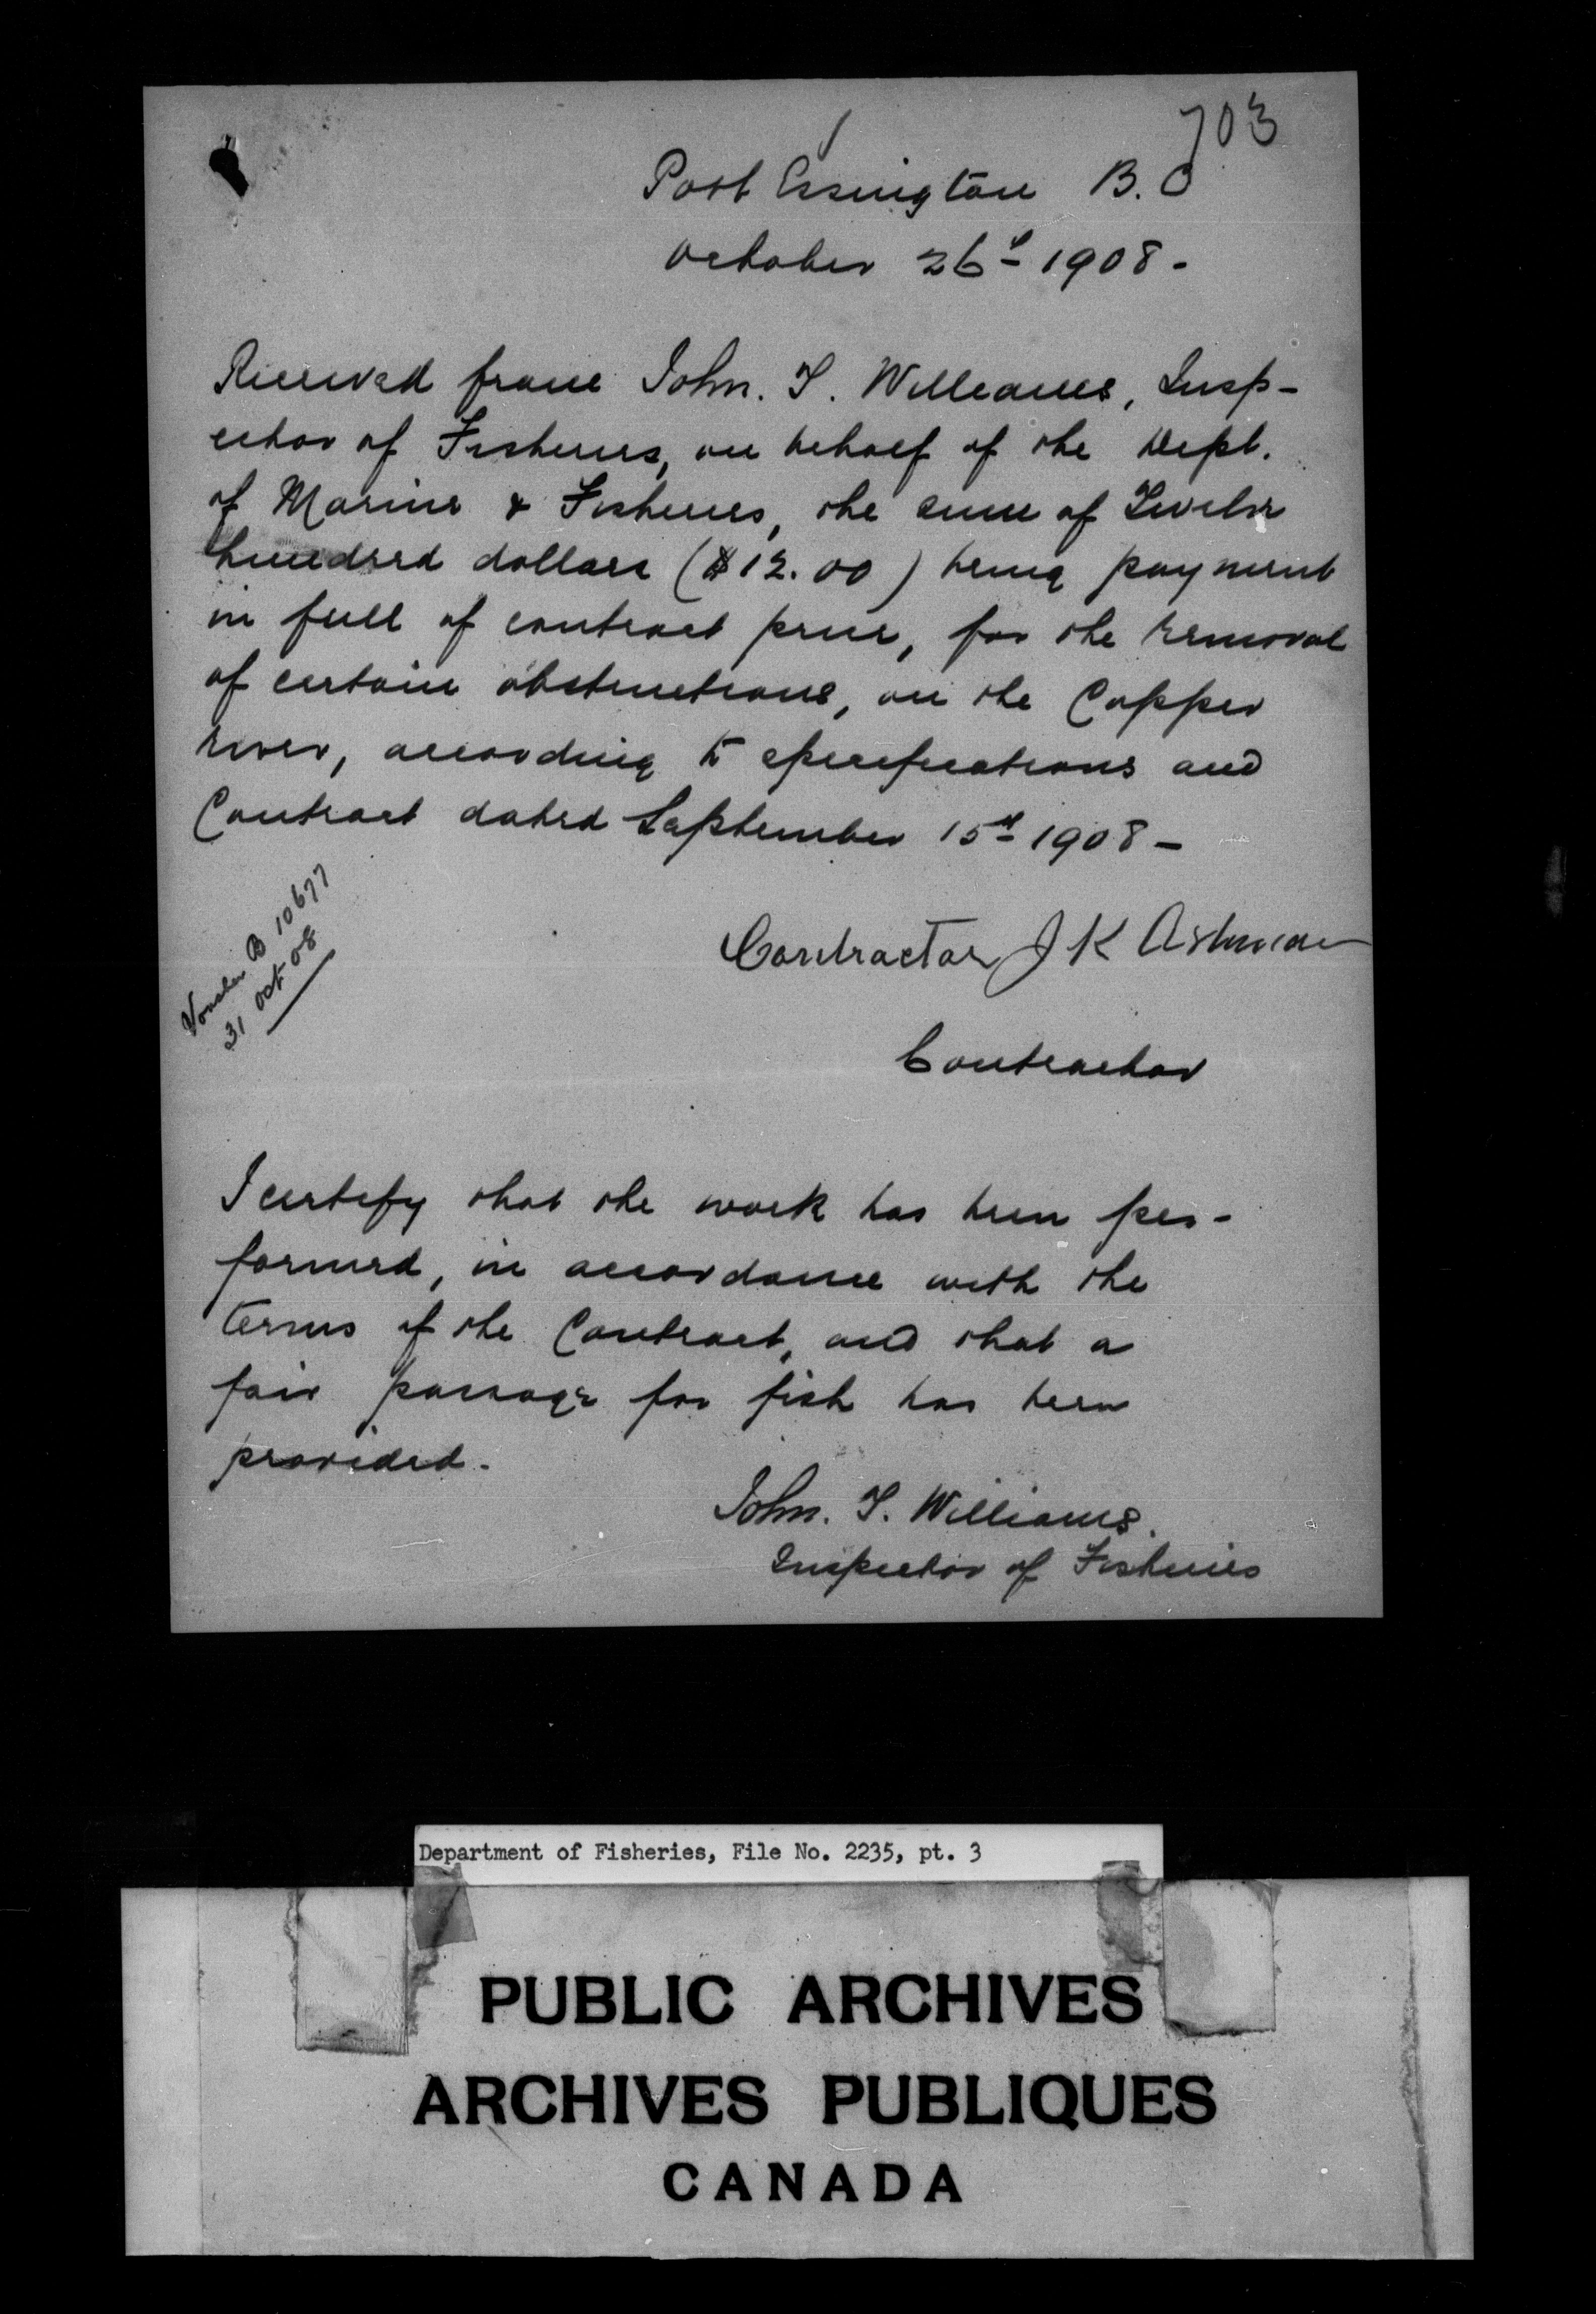 703
Port Essington B.C
October 26th 1908 -
Received from John. T. Williams, Insp-
ector of Fisheries, on behalf of the Dept.
of Marine & Fisheries, the sum of Twelve
hundred dollars ($12.00) being payment
in full of contract price, for the removal
of certain obstructions, on the Copper
river, according to specifications and
Contract dated September 15th 1908 -
Voucher B 10677
31 Oct 08
Contractor J K Ashman
Contractor
I certify that the work has been per-
formed, in accordance with the
terms of the Contract, and that a
fair passage for fish has been
provided.
John. T. Williams.
Inspector of Fisheries
Department of Fisheries, File No. 2235, pt. 3
PUBLIC ARCHIVES
ARCHIVES PUBLIQUES
CANADA